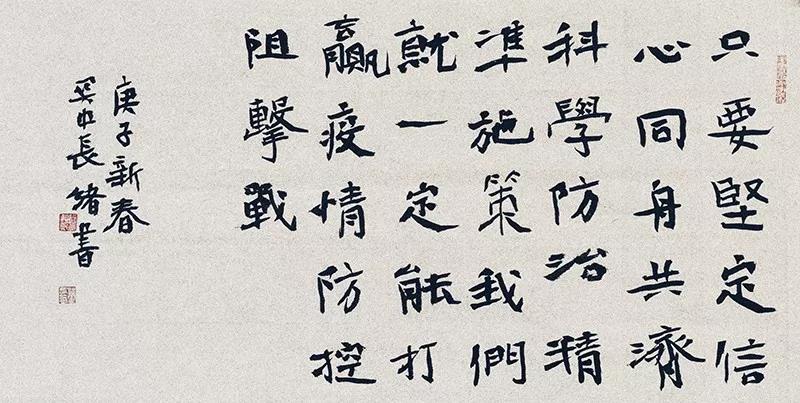 只要堅定信
心同舟共濟
科學防治精
準施策我們
就一定能打
贏疫情防控
阻擊戰
庚子新春
長緒書